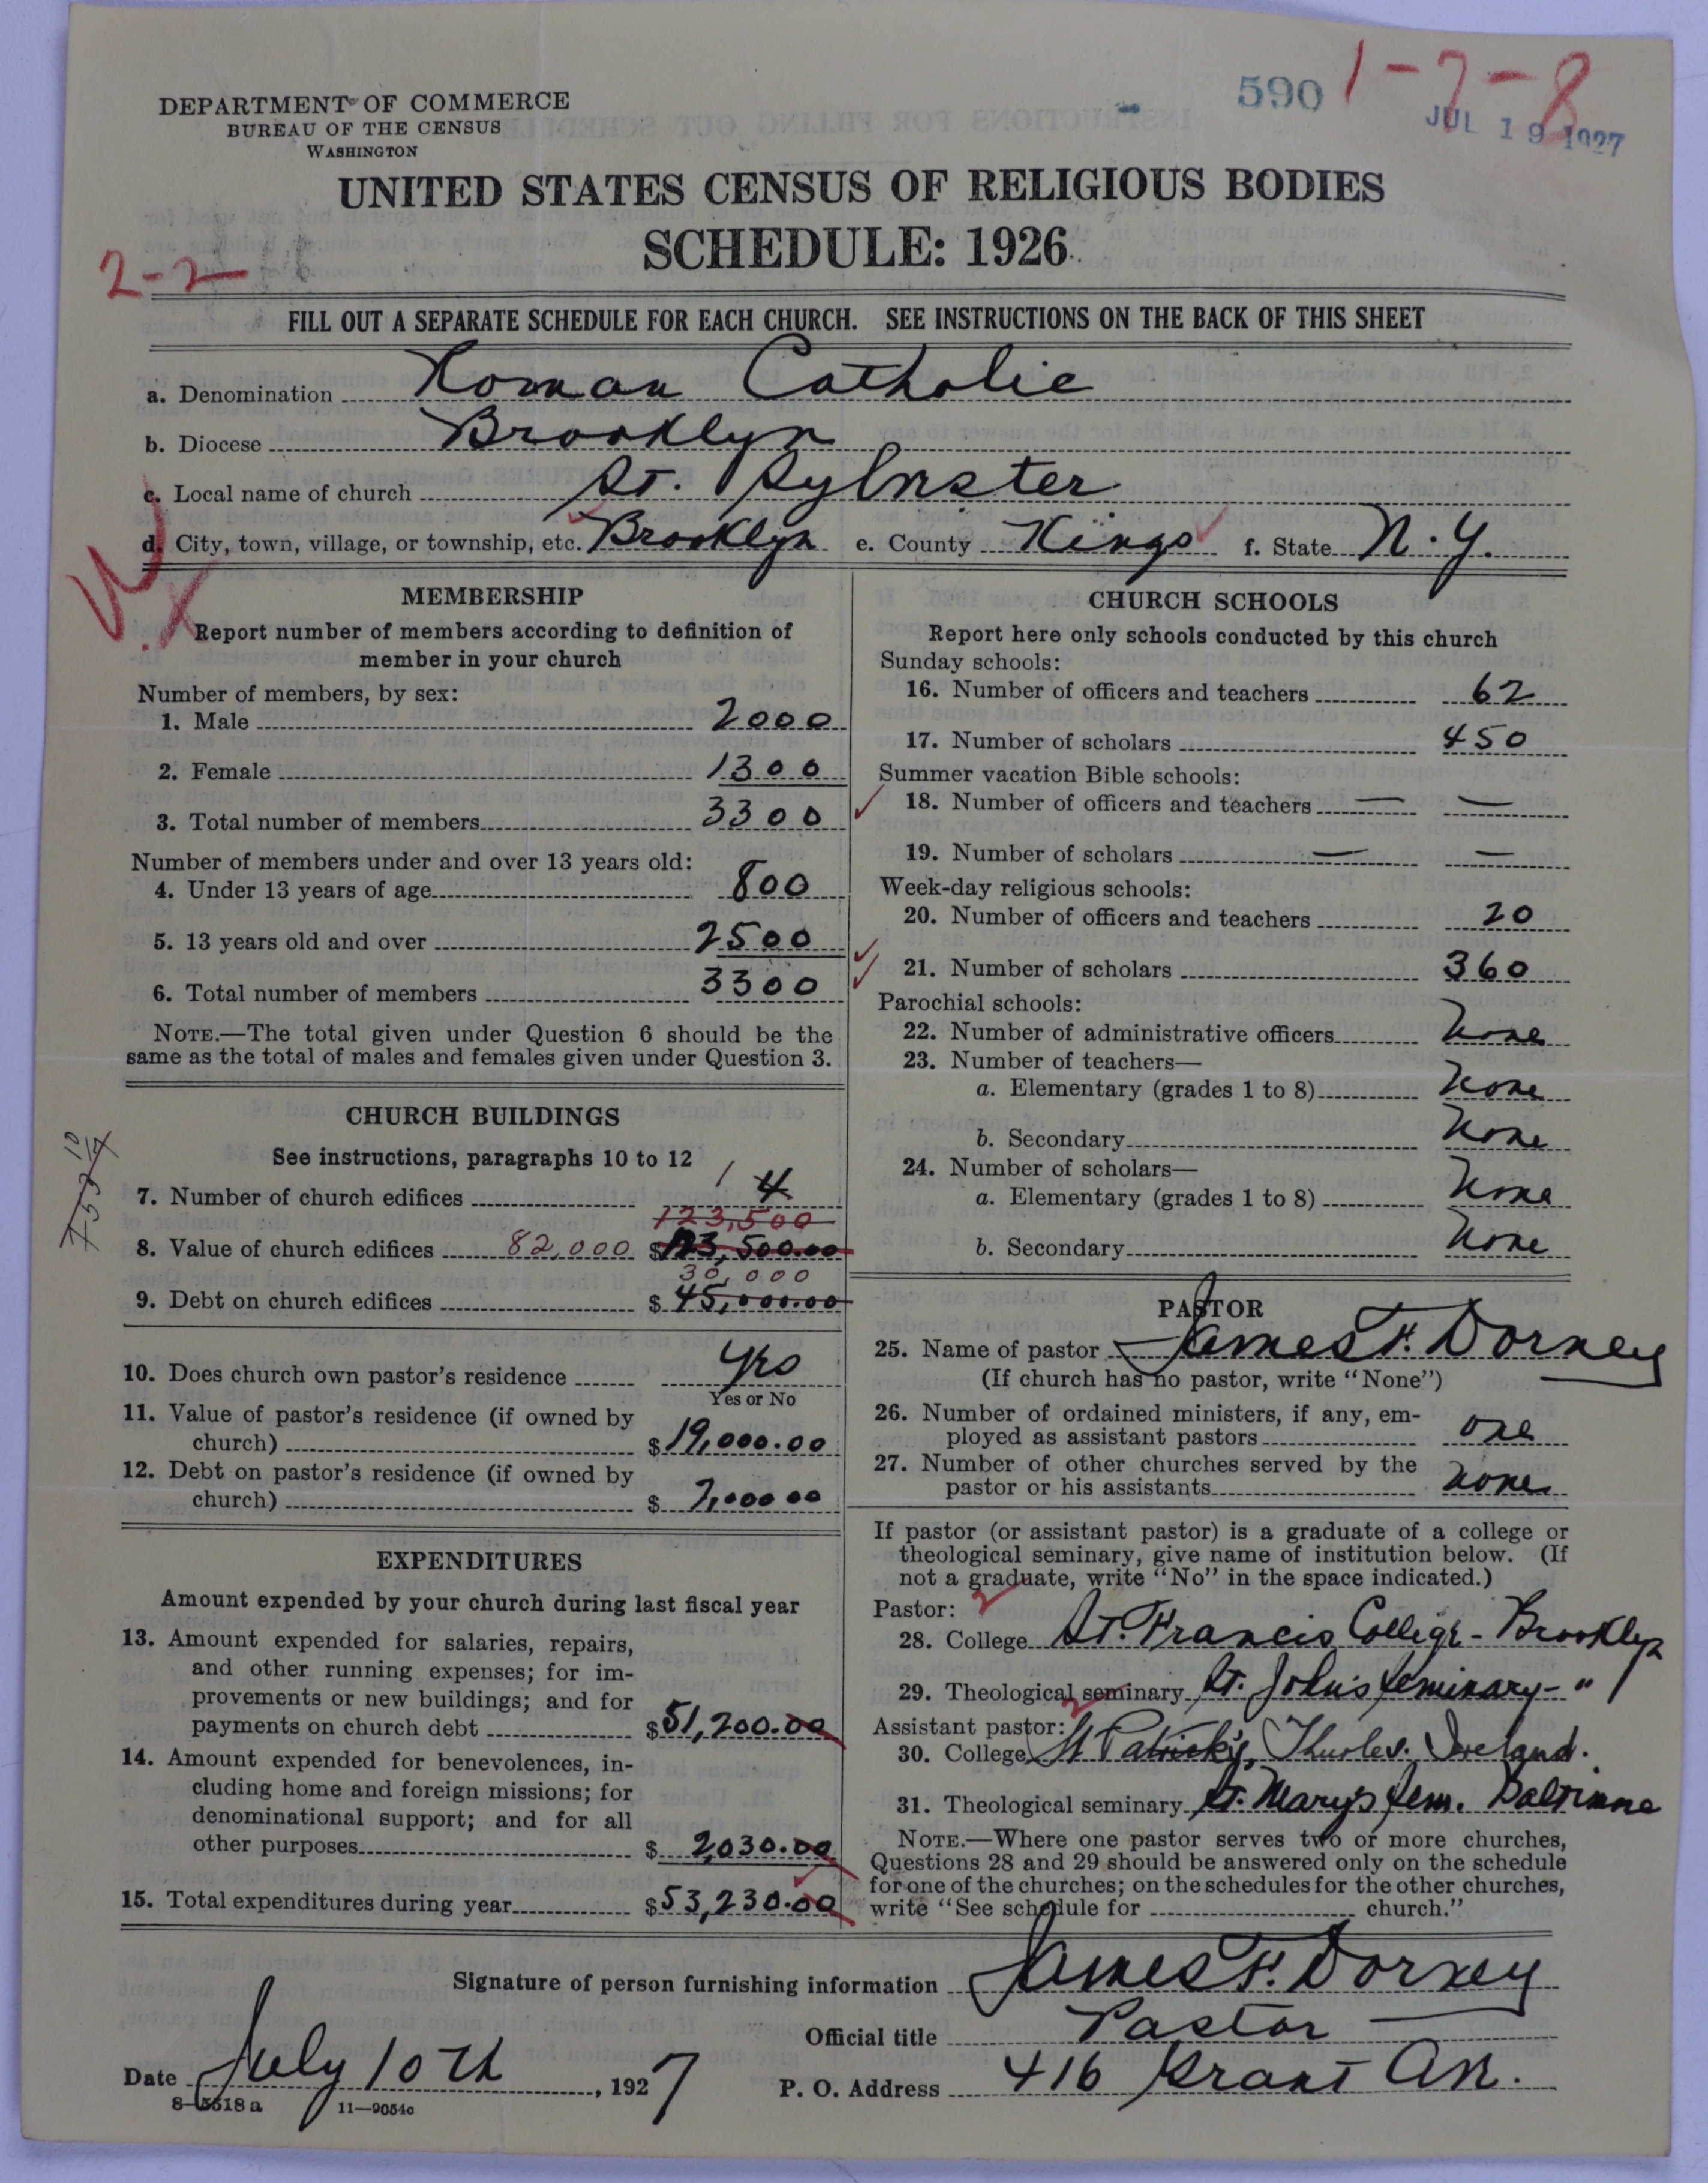 590 1-7-8
JUL 19 1927
DEPARTMENT OF COMMERCE
BUREAU OF THE CENSUS
WASHINGTON
UNITED STATES CENSUS OF RELIGIOUS BODIES
SCHEDULE: 1926
2-2-
FILL OUT A SEPARATE SCHEDULE FOR EACH CHURCH. SEE INSTRUCTIONS ON THE BACK OF THIS SHEET
a. Denomination Roman Catholic
b. Diocese Brooklyn
c. Local name of church St. Sylvester
d. City, town, village, or township, etc. Brooklyn e. County Kings f. State N.Y.
MEMBERSHIP
Report number of members according to definition of
member in your church
Number of members, by sex:
1. Male 2000
2. Female 1300
3. Total number of members 3300
Number of members under and over 13 years old:
4. Under 13 years of age 800
5. 13 years old and over 2500
6. Total number of members 3300
NOTE.—The total given under Question 6 should be the
same as the total of males and females given under Question 3.
CHURCH BUILDINGS
See instructions, paragraphs 10 to 12
7. Number of church edifices 1 4
123,500
8. Value of church edifices 82,000 $123,500.00
30,000
9. Debt on church edifices $45,000.00
10. Does church own pastor's residence Yes
Yes or No
11. Value of pastor's residence (if owned by
church) $19,000.00
12. Debt on pastor's residence (if owned by
church) $7,000 00
EXPENDITURES
Amount expended by your church during last fiscal year
13. Amount expended for salaries, repairs,
and other running expenses; for im-
provements or new buildings; and for
payments on church debt $51,200.00
14. Amount expended for benevolences, in-
cluding home and foreign missions; for
denominational support; and for all
other purposes $2,030.00
15. Total expenditures during year $53,230.00
CHURCH SCHOOLS
Report here only schools conducted by this church
Sunday schools:
16. Number of officers and teachers 62
17. Number of scholars 450
Summer vacation Bible schools:
18. Number of officers and teachers — —
19. Number of scholars — —
Week-day religious schools:
20. Number of officers and teachers 20
21. Number of scholars 360
Parochial schools:
22. Number of administrative officers None
23. Number of teachers—
a. Elementary (grades 1 to 8) None
b. Secondary None
24. Number of scholars—
a. Elementary (grades 1 to 8) None
b. Secondary None
PASTOR
25. Name of pastor James F. Dorney
(If church has no pastor, write "None")
26. Number of ordained ministers, if any, em-
ployed as assistant pastors one
27. Number of other churches served by the
pastor or his assistants none
If pastor (or assistant pastor) is a graduate of a college or
theological seminary, give name of institution below. (If
not a graduate, write "No" in the space indicated.)
Pastor:
28. College St. Francis College - Brooklyn
29. Theological seminary St. John's Seminary - "
Assistant pastor:
30. College St Patrick's, Thurles. Ireland.
31. Theological seminary St. Mary's Sem. Baltimore
NOTE.—Where one pastor serves two or more churches,
Questions 28 and 29 should be answered only on the schedule
for one of the churches; on the schedules for the other churches,
write "See schedule for church."
Signature of person furnishing information James F. Dorney
Official title Pastor
Date July 10th, 1927 P. O. Address 416 Grant Ave.
8-5518a 11-9054c